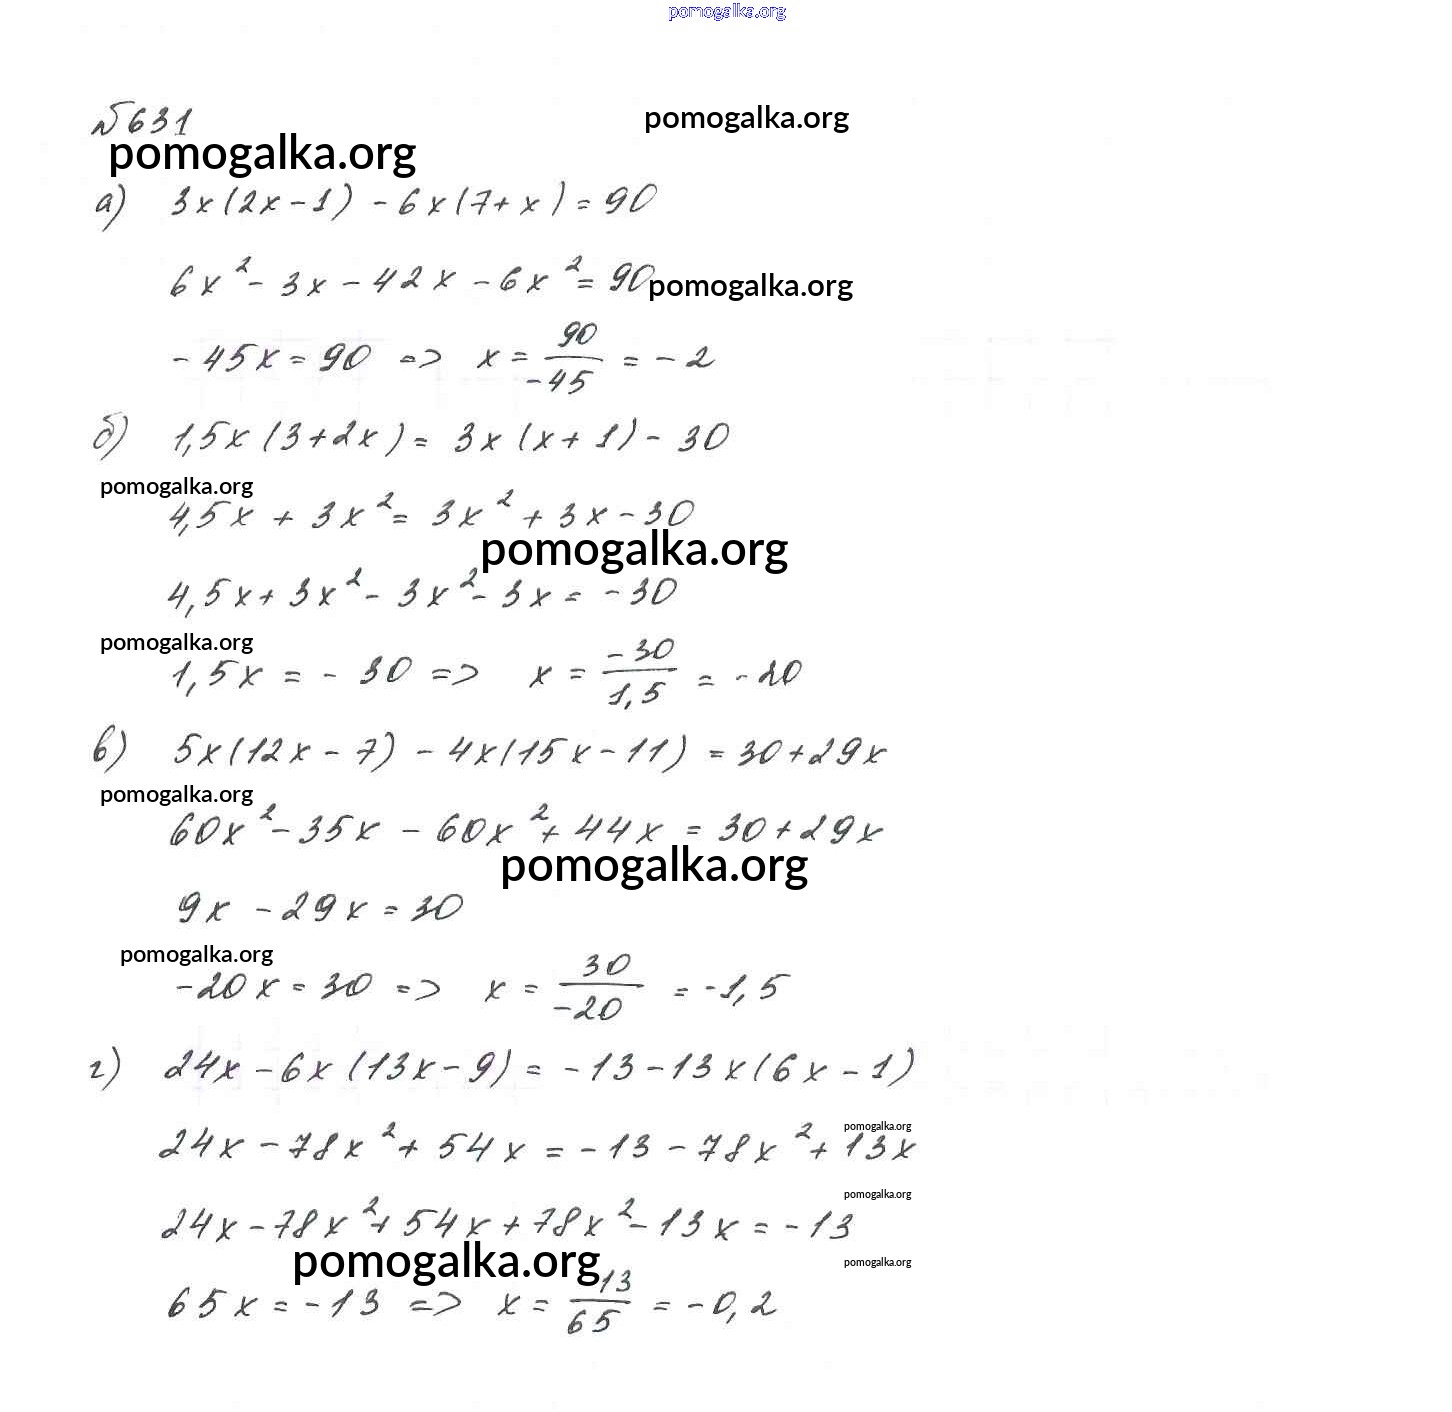 pomogalka.org
№631
pomogalka.org
pomogalka.org
а) 3x(2x-1) - 6x(7+x) = 90
6x² - 3x - 42x - 6x² = 90
pomogalka.org
-45x = 90 => x = 90/-45 = -2
б) 1,5x(3+2x) = 3x(x+1) - 30
pomogalka.org
4,5x + 3x² = 3x² + 3x - 30
pomogalka.org
4,5x + 3x² - 3x² - 3x = -30
pomogalka.org
1,5x = -30 => x = -30/1,5 = -20
в) 5x(12x - 7) - 4x(15x - 11) = 30 + 29x
pomogalka.org
60x² - 35x - 60x² + 44x = 30 + 29x
pomogalka.org
9x - 29x = 30
pomogalka.org
-20x = 30 => x = 30/-20 = -1,5
г) 24x - 6x(13x - 9) = -13 - 13x(6x - 1)
pomogalka.org
24x - 78x² + 54x = -13 - 78x² + 13x
pomogalka.org
24x - 78x² + 54x + 78x² - 13x = -13
pomogalka.org
pomogalka.org
65x = -13 => x = 13/65 = -0,2